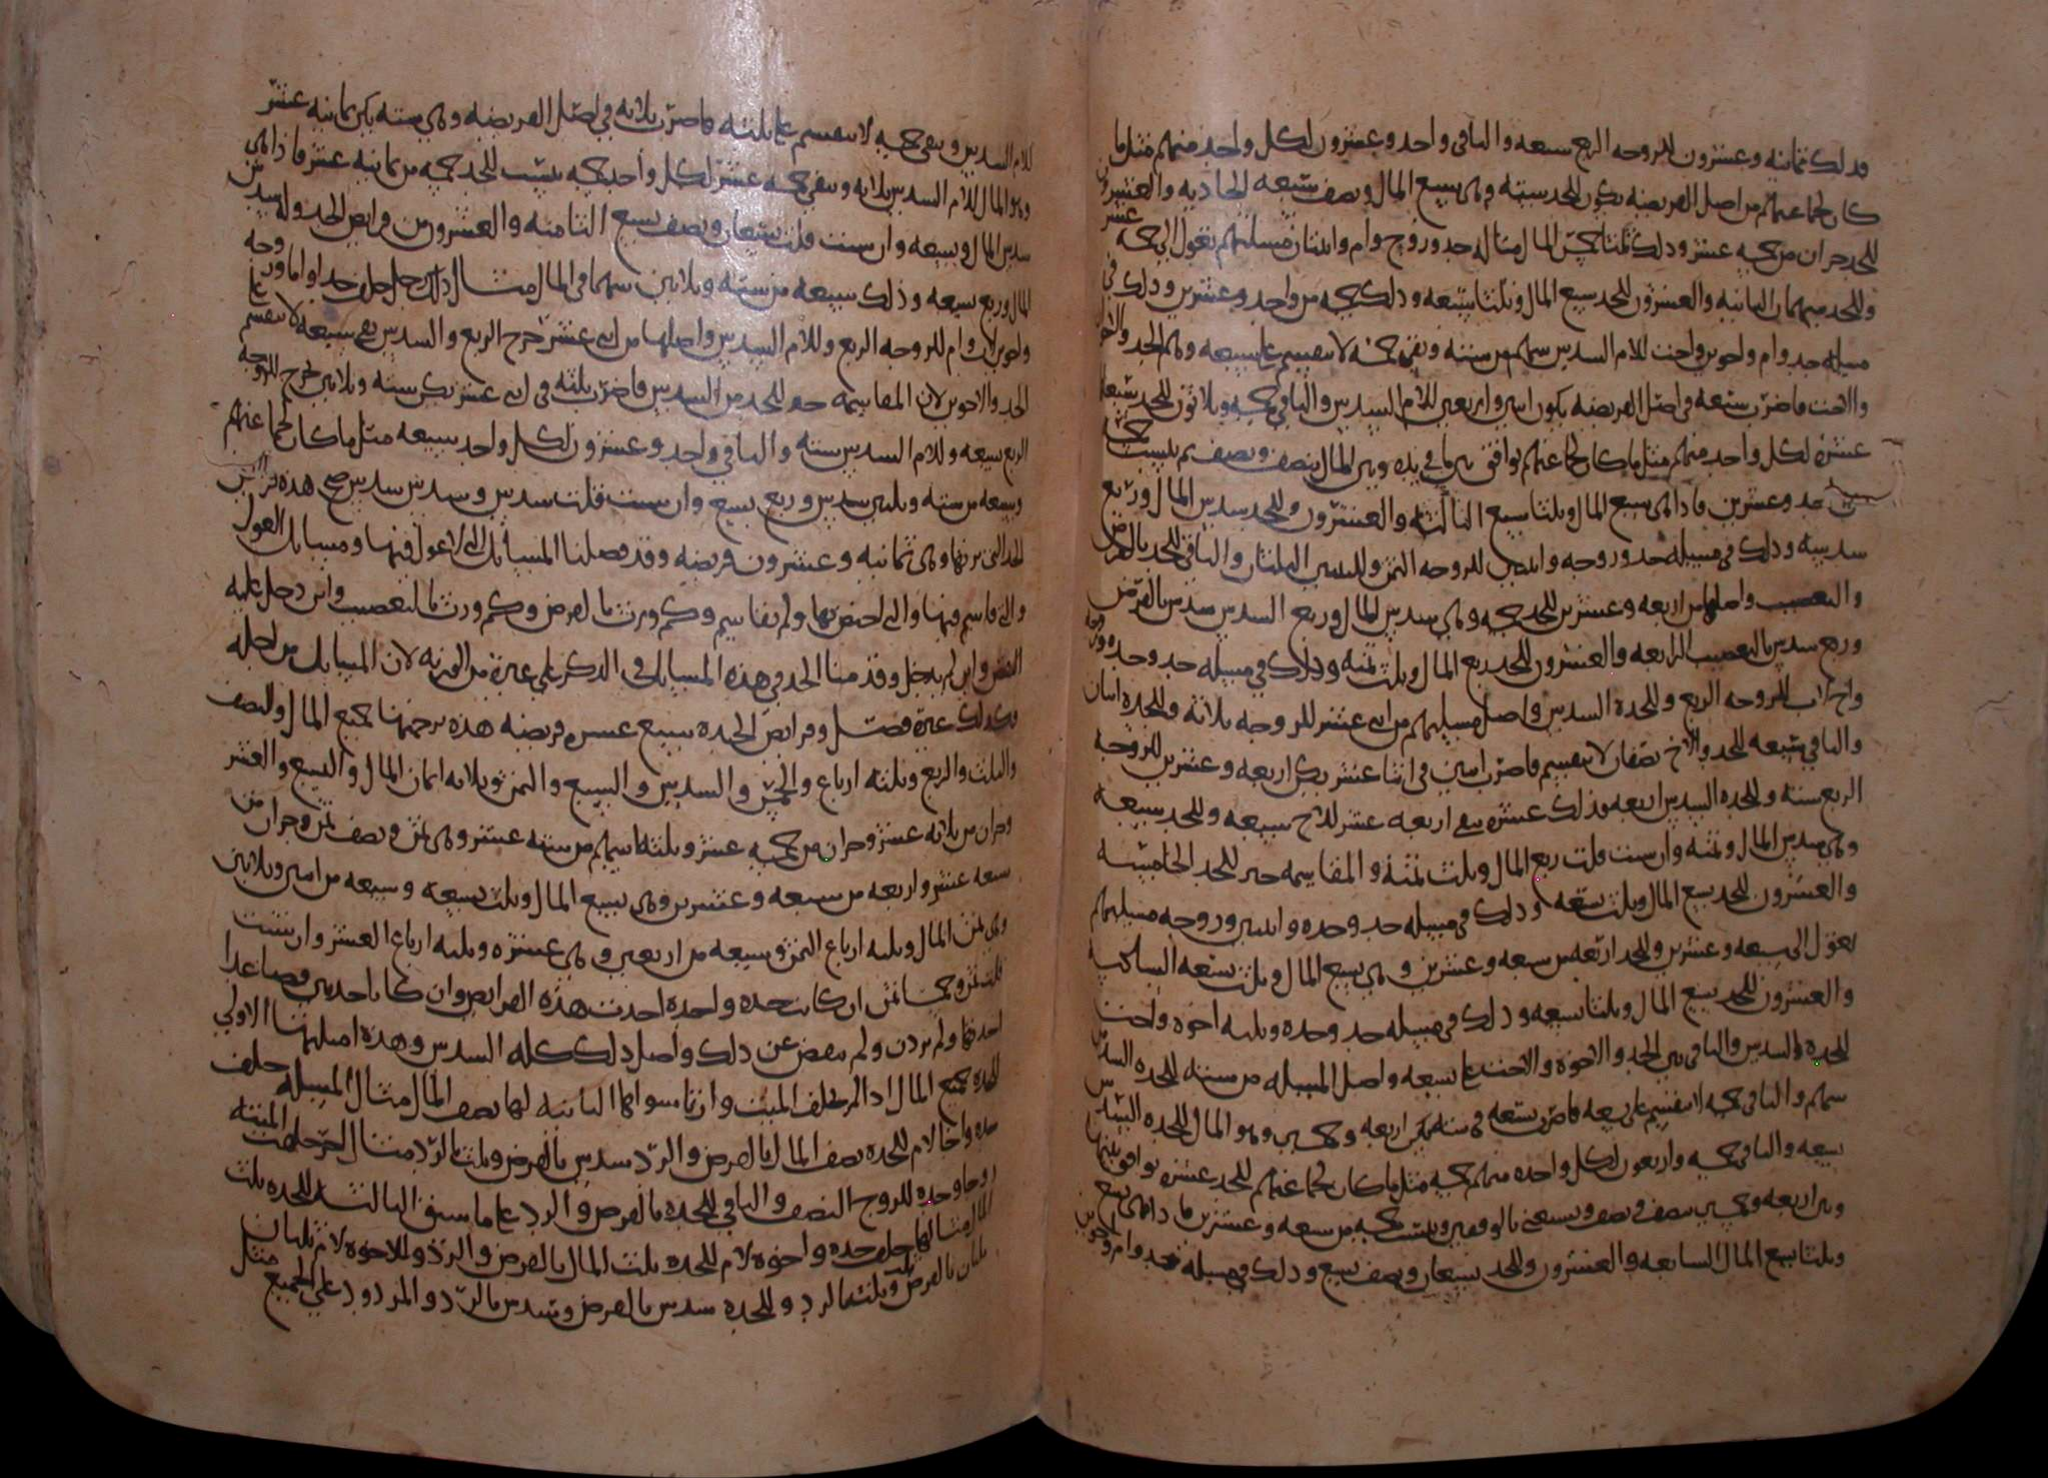 فذلك ثمانيه وعشرون للزوجه الربع سبعه والباقى واحد وعشرون لكل واحد منهم مثل ما
كان لجماعتهم من اصل الفريضه يكون للجد سته وهى سبع المال ونصف سبعه الحاديه والعشرون
للجد جزان من خمسه عشر وذلك ثلثا خمس المال مثاله جد وزوج وام وابنتان مسلتهم تعول الى خمسه عشر
وللجد سهمان الثانيه والعشرون للجد سبع المال وثلثا سبعه وذلك خمسه من واحد وعشرين وذلك فى
مسله جد وام واخوين واخت للام السدس سهم من سته وبقى خمسه لا تنقسم على سبعه وهم الجد والاخوان
والاخت فاضرب سبعه فى اصل الفريضه يكون اثنين واربعين للام السدس والباقى خمسه وثلاثون للجد
عشره لكل واحد منهم مثل ما كان لجماعتهم توافق بين ما فى يده وبين المال بنصف ونصف
وعشرين فاذا هى سبع المال وثلثا سبع الثالثه والعشرون وللجد سدس المال وربع
سدسه وذلك فى مسله جد وزوجه وابنتين للزوجه الثمن وللبنتين الثلثان والباقى للجد بالفرض
والتعصيب واصلها من اربعه وعشرين للجد خمسه وهى سدس المال وربع السدس سدس بالفرض
وربع سدس بالتعصيب الرابعه والعشرون للجد ربع المال وثلث ثمنه وذلك فى مسله جد وجده وزوجه
واخ لاب للزوجه الربع وللجده السدس واصل مسلتهم من اثنى عشر للزوجه ثلاثه وللجده اثنان
والباقى سبعه للجد والاخ نصفان لا تنقسم فاضرب اثنين فى اثنا عشر يكن اربعه وعشرين للزوجه
الربع سته وللجده السدس اربعه فذلك عشره بقى اربعه عشر للاخ سبعه وللجد سبعه
وهى سدس المال وثمنه وان شئت قلت ربع المال وثلث ثمنه والمقاسمه خير للجد الخامسه
والعشرون للجد سبع المال وثلث تسعه وذلك فى مسله جد وجده وابنتين وزوجه مسلتهم
تعول الى سبعه وعشرين وللجد اربعه من سبعه وعشرين وهى تسع المال وثلث تسعه السادسه
والعشرون للجد سبع المال وثلثا تسعه وذلك فى مسله جد وجده وثلثه اخوه واخت
للجده السدس والباقى بين الجد والاخوه والاخت على تسعه واصل المسله من سته للجده السدس
سهم والباقى خمسه لا تنقسم على تسعه فاضرب تسعه فى سته يكن اربعه وخمسين وهو المال للجده السدس
تسعه والباقى خمسه واربعون لكل واحده منهم خمسه مثل ما كان لجماعتهم للجد عشره توافق بينها
وبين اربعه وخمسين بنصف ونصف وتسعى بالوفقين وبنسب خمسه من سبعه وعشرين فاذا هى تسع
وثلثا تسع المال السابعه والعشرون وللجد سبعان ونصف سبع وذلك فى مسله جد وام واخوين
للام السدس وبقى خمسه لا تنقسم على ثلثه فاضرب ثلاثه فى اصل الفريضه وهى سته يكن ثمانيه عشر
وهو المال للام السدس ثلاثه وبقى خمسه عشر لكل واحد خمسه ينسب للجد خمسه من ثمانيه عشر فاذا هى
سدس المال وتسعه وان شئت قلت تسعان ونصف تسع الثامنه والعشرون من فرايض الجد وله سدس
المال وربع تسعه وذلك سبعه من سته وثلاثين سهما فى المال مثال ذلك رجل خلف جدا واما وزوجه
واخوين لاب وام للزوجه الربع وللام السدس واصلها من اثنى عشر خرج الربع والسدس بقى سبعه لا تنقسم على
الجد والاخوين لان المقاسمه خير للجد من السدس فاضرب ثلثه فى اثنى عشر يكن سته وثلاثين خرج للزوجه
الربع تسعه وللام السدس سته والباقى واحد وعشرون لكل واحد سبعه مثل ما كان لجماعتهم
وسبعه من سته وثلثين سدس وربع تسع وان شئت قلت سدس وسدس سدس صح هذه فرايض
الجد التى يرثها وهى ثمانيه وعشرون فريضه وقد فصلنا المسايل التى لا عول فيها ومسايل العول
والتى قاسم فيها والتى اختص بها ولم يقاسم وكم ورث بالفرض وكم ورث بالتعصيب واين دخل عليه
النقص واين لم يدخل وقدمنا الجد فى هذه المسايل فى الذكر على غيره من الورثه لان المسايل من اجله
وكذلك غيره فصل وفرايض الجده سبع عشره فريضه هذه ترجمتها جميع المال والنصف
والثلث والربع وثلثه ارباع والخمس والسدس والسبع والثمن وثلاثه اثمان المال والتسع والعشر
وجزان من ثلاثه عشر وجزان من خمسه عشر وثلثه اسهم من سته عشر وهى ثمن ونصف ثمن وجزان من
سبعه عشر واربعه من سبعه وعشرين وهى تسع المال وثلث تسعه وسبعه من اثنين وثلاثين
وهى ثمن المال وثلثه ارباع الثمن وسبعه من اربعين وهى عشره وثلثه ارباع العشر وان شئت
قلت ثمن وخمسا ثمن ان كانت جده واحده اخذت هذه الفرايض وان كانا جدتين فصاعدا
اخذتها ولم يزدن ولم ينقصن عن ذلك واصل ذلك كله السدس وهذه امثلتها الاولى
للجده جميع المال اذا لم يخلف الميت وارثا سواها الثانيه لها نصف المال مثال المسله خلف
جده واخا لام للجده نصف المال بالفرض والرد سدس بالفرض وثلث بالرد مثال اخر خلفت الميته
زوجا وجده للزوج النصف والباقى للجده بالفرض والرد على ما سبق الثالثه للجده ثلث
المال مثالها خلف جده واخوه لام للجده ثلث المال بالفرض والرد وللاخوه لام ثلثان
ثلثان بالفرض وثلثه بالرد وللجده سدس بالفرض وسدس بالرد والمردود على الجميع مثل